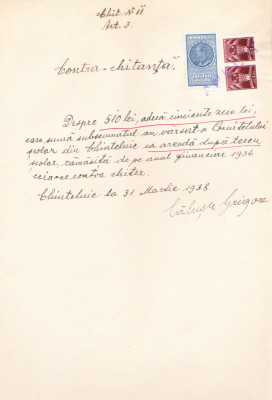 Chit. N. 11
Art. 3.
Contra-chitanță.
Despre 510 lei, adecă cincisute zece lei,
care sumă subsemnatul am vărsat Comitetului
școlar din Chintelnic ca arendă după teren
școlar, rămășită de pe anul financiar 1936
contra
Chintelnic la 31 Martie 1938
Grigore